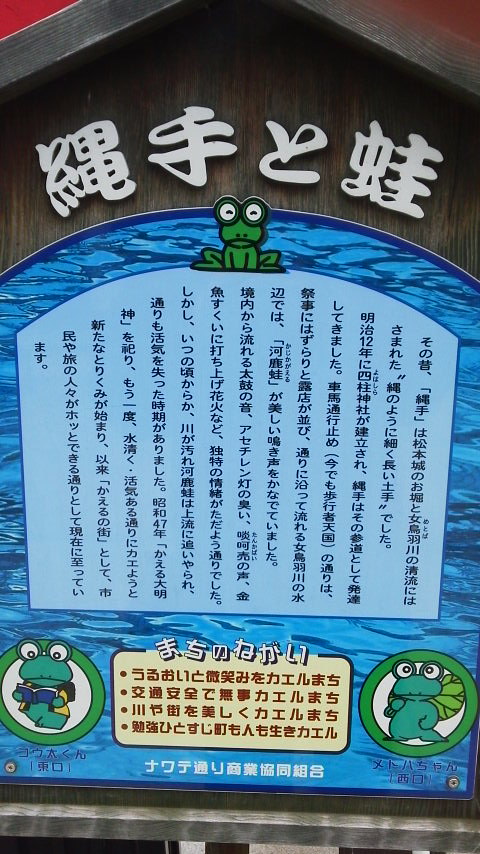 縄手と蛙
その昔、「縄手」は松本城のお堀と女鳥羽川の清流には
さまれた〝縄のように細く長い土手〟でした。
明治12年に四柱神社が建立され、縄手はその参道として発達
してきました。車馬通行止め（今でも歩行者天国）の通りは、
祭事にはずらりと露店が並び、通りに沿って流れる女鳥羽川の水
辺では、「河鹿蛙」が美しい鳴き声をかなでていました。
境内から流れる太鼓の音、アセチレン灯の臭い、啖呵売の声、金
魚すくいに打ち上げ花火など、独特の情緒がただよう通りでした。
しかし、いつの頃からか、川が汚れ河鹿蛙は上流に追いやられ、
通りも活気を失った時期がありました。昭和47年「かえる大明
神」を祀り、もう一度、水清く・活気ある通りにカエようと
新たなとりくみが始まり、以来「かえるの街」として、市
民や旅の人々がホッとできる通りとして現在に至ってい
ます。
めとば
よはしら
かじかがえる
たんかばい
まちのねがい
・うるおいと微笑みをカエルまち
・交通安全で無事カエルまち
・川や街を美しくカエルまち
・勉強ひとすじ町も人も生きカエル
コウ太くん
（東口）
メトバちゃん
（西口）
ナワテ通り商業協同組合